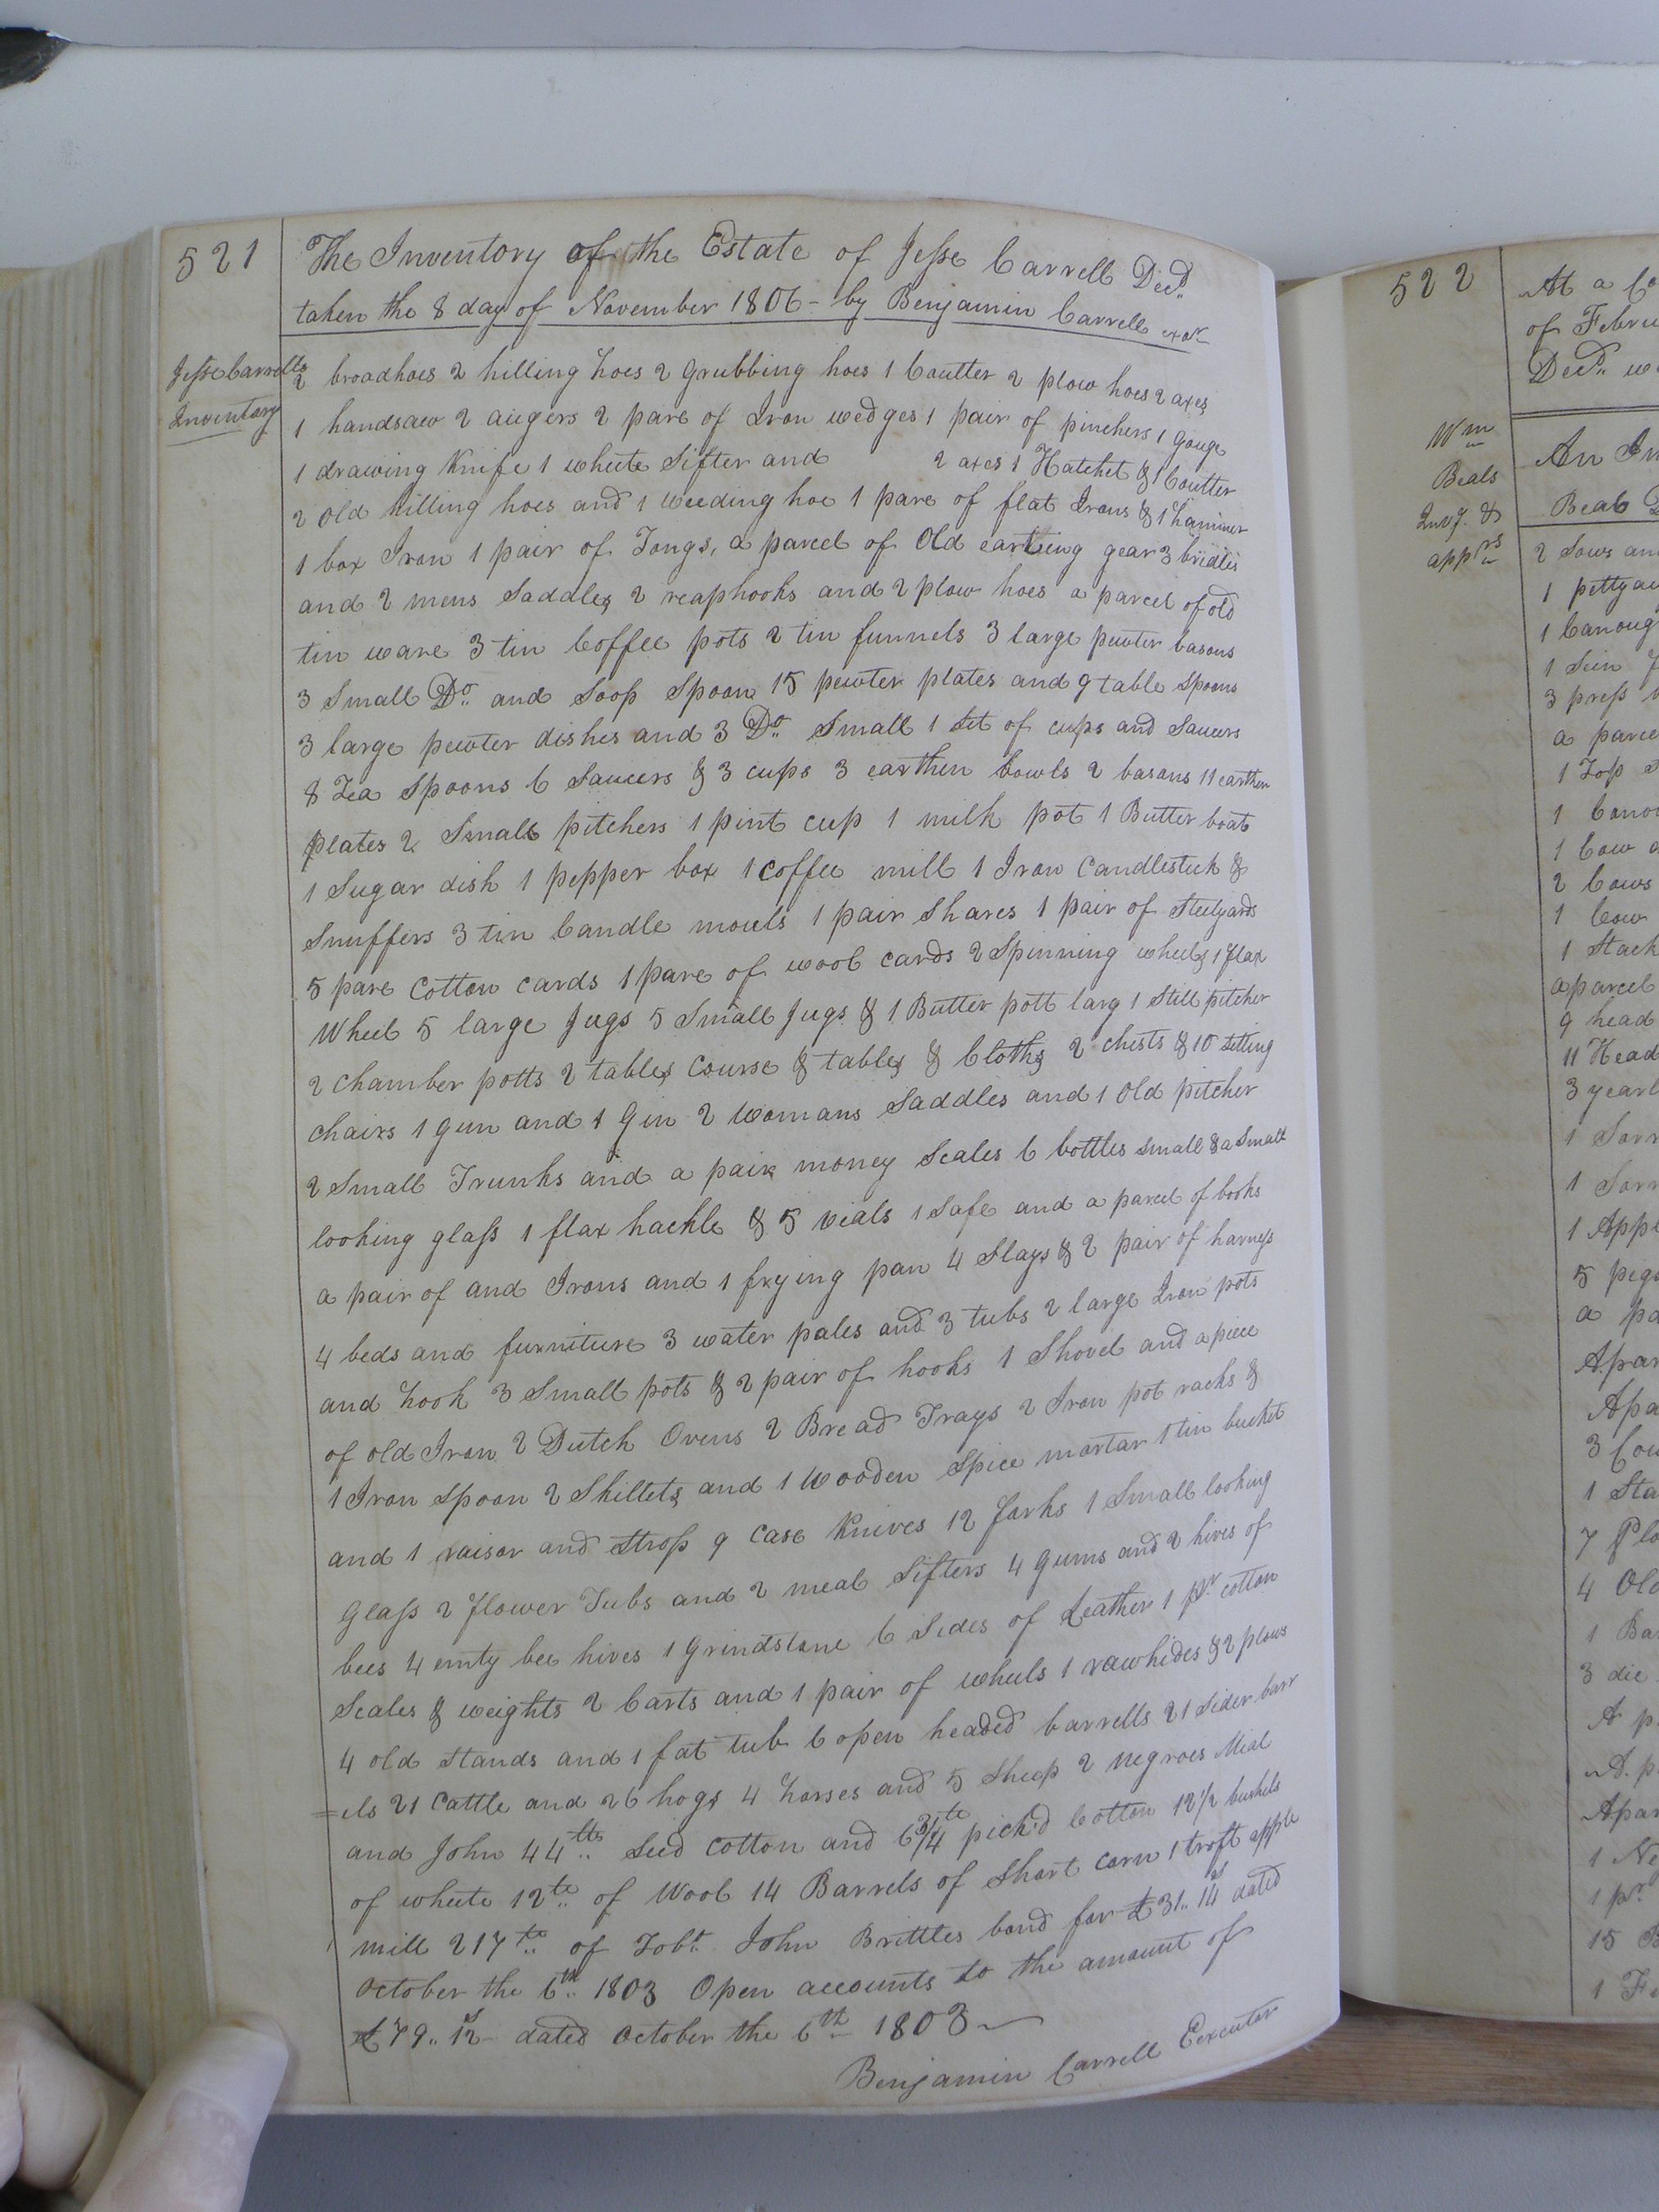 521
The Inventory of the Estate of Jesse Carrell Decd.
taken the 8 day of November 1806 - by Benjamin Carrell exor
Jesse Carrells
Inventory
2 broadhoes 2 hilling hoes 2 Grubbing hoes 1 Coutter 2 plow hoes 2 axes
1 handsaw 2 augers 2 pare of Iron wedges 1 pair of pinchers 1 gouge
1 drawing Knife 1 wheete Sifter and 2 axes 1 Hatchet & 1 Coutter
2 old hilling hoes and 1 weeding hoe 1 pare of flat Irons & 1 hammer
1 box Iron 1 pair of Tongs, a parcel of Old earteing gear 3 bridles
and 2 mens Saddles 2 reaphooks and 2 plow hoes a parcel of old
tin ware 3 tin Coffee pots 2 tin funnels 3 large pewter basons
3 Small Do. and Soop Spoon 15 pewter plates and 9 table Spoons
3 large pewter dishes and 3 Do. Small 1 Set of cups and Saucers
8 Tea Spoons 6 Saucers & 3 cups 3 earthen bowls 2 basons 11 earthen
plates 2 Small pitchers 1 pint cup 1 milk pot 1 Butter boat
1 Sugar dish 1 pepper box 1 coffee mill 1 Iron Candlestick &
Snuffers 3 tin Candle mouls 1 pair Shares 1 pair of Steelyards
5 pare Cotton cards 1 pare of wool cards 2 Spinning wheels 1 flax
Wheel 5 large Jugs 5 Small Jugs & 1 Butter pott larg 1 Still pitcher
2 chamber potts 2 tables Course & tables & Cloths 2 chists & 10 Setting
chairs 1 gun and 1 Gin 2 Womans Saddles and 1 old pitcher
2 Small Trunks and a pair money Scales 6 bottles small & a Small
looking glass 1 flax hackle & 5 vials 1 Safe and a parcel of books
a pair of and Irons and 1 frying pan 4 Slays & 2 pair of harness
4 beds and furniture 3 water pales and 3 tubs 2 large Iron pots
and hook 3 Small pots & 2 pair of hooks 1 Shovel and a piece
of old Iron 2 Dutch Ovens 2 Bread Trays 2 Iron pot racks &
1 Iron Spoon 2 Skillets and 1 Wooden Spice mortar 1 tin bucket
and 1 raisor and Strop 9 Case Knives 12 forks 1 Small looking
Glass 2 flower Tubs and 2 meal Sifters 4 Gums and 2 hives of
bees 4 emty bee hives 1 Grindstone 6 Sides of Leather 1 pr. cotton
Scales & weights 2 Carts and 1 pair of wheels 1 rawhides & 2 plows
4 old Stands and 1 fat tub 6 open headed barrells 21 Sider barr
=els 21 Cattle and 26 hogs 4 horses and 5 Sheep 2 negroes Mial
and John 44 tts. Seed Cotton and 6 3/4 te pick'd Cotton 12 1/2 bushels
of wheete 12 te. of Wool 14 Barrels of Short corn 1 troft apple
mill 217 te. of Tobo. John Brittles bond for £31..14s dated
October the 6th. 1803 Open accounts to the amount of
£79..12s dated October the 6th 1803
Benjamin Carrell Eexcutor
522
At a Co
of Febru
Decd. w
Wm
Beals
Invy. &
apprs
An In
Beals D
2 Sows an
1 pettyau
1 Canoug
1 Sein
3 press
a parce
1 Top
1 Cano
1 Cow
2 Cows
1 Cow
1 Stack
a parcel
9 head
11 Head
3 yearl
1 Sorr
1 Sorr
1 Appl
5 pigs
a pa
Apar
Apa
3 Cou
1 Sta
7 Plo
4 Old
1 Ba
3 die
A p
A. p
Apar
1 Ne
1 pr
15 B
1 Fe